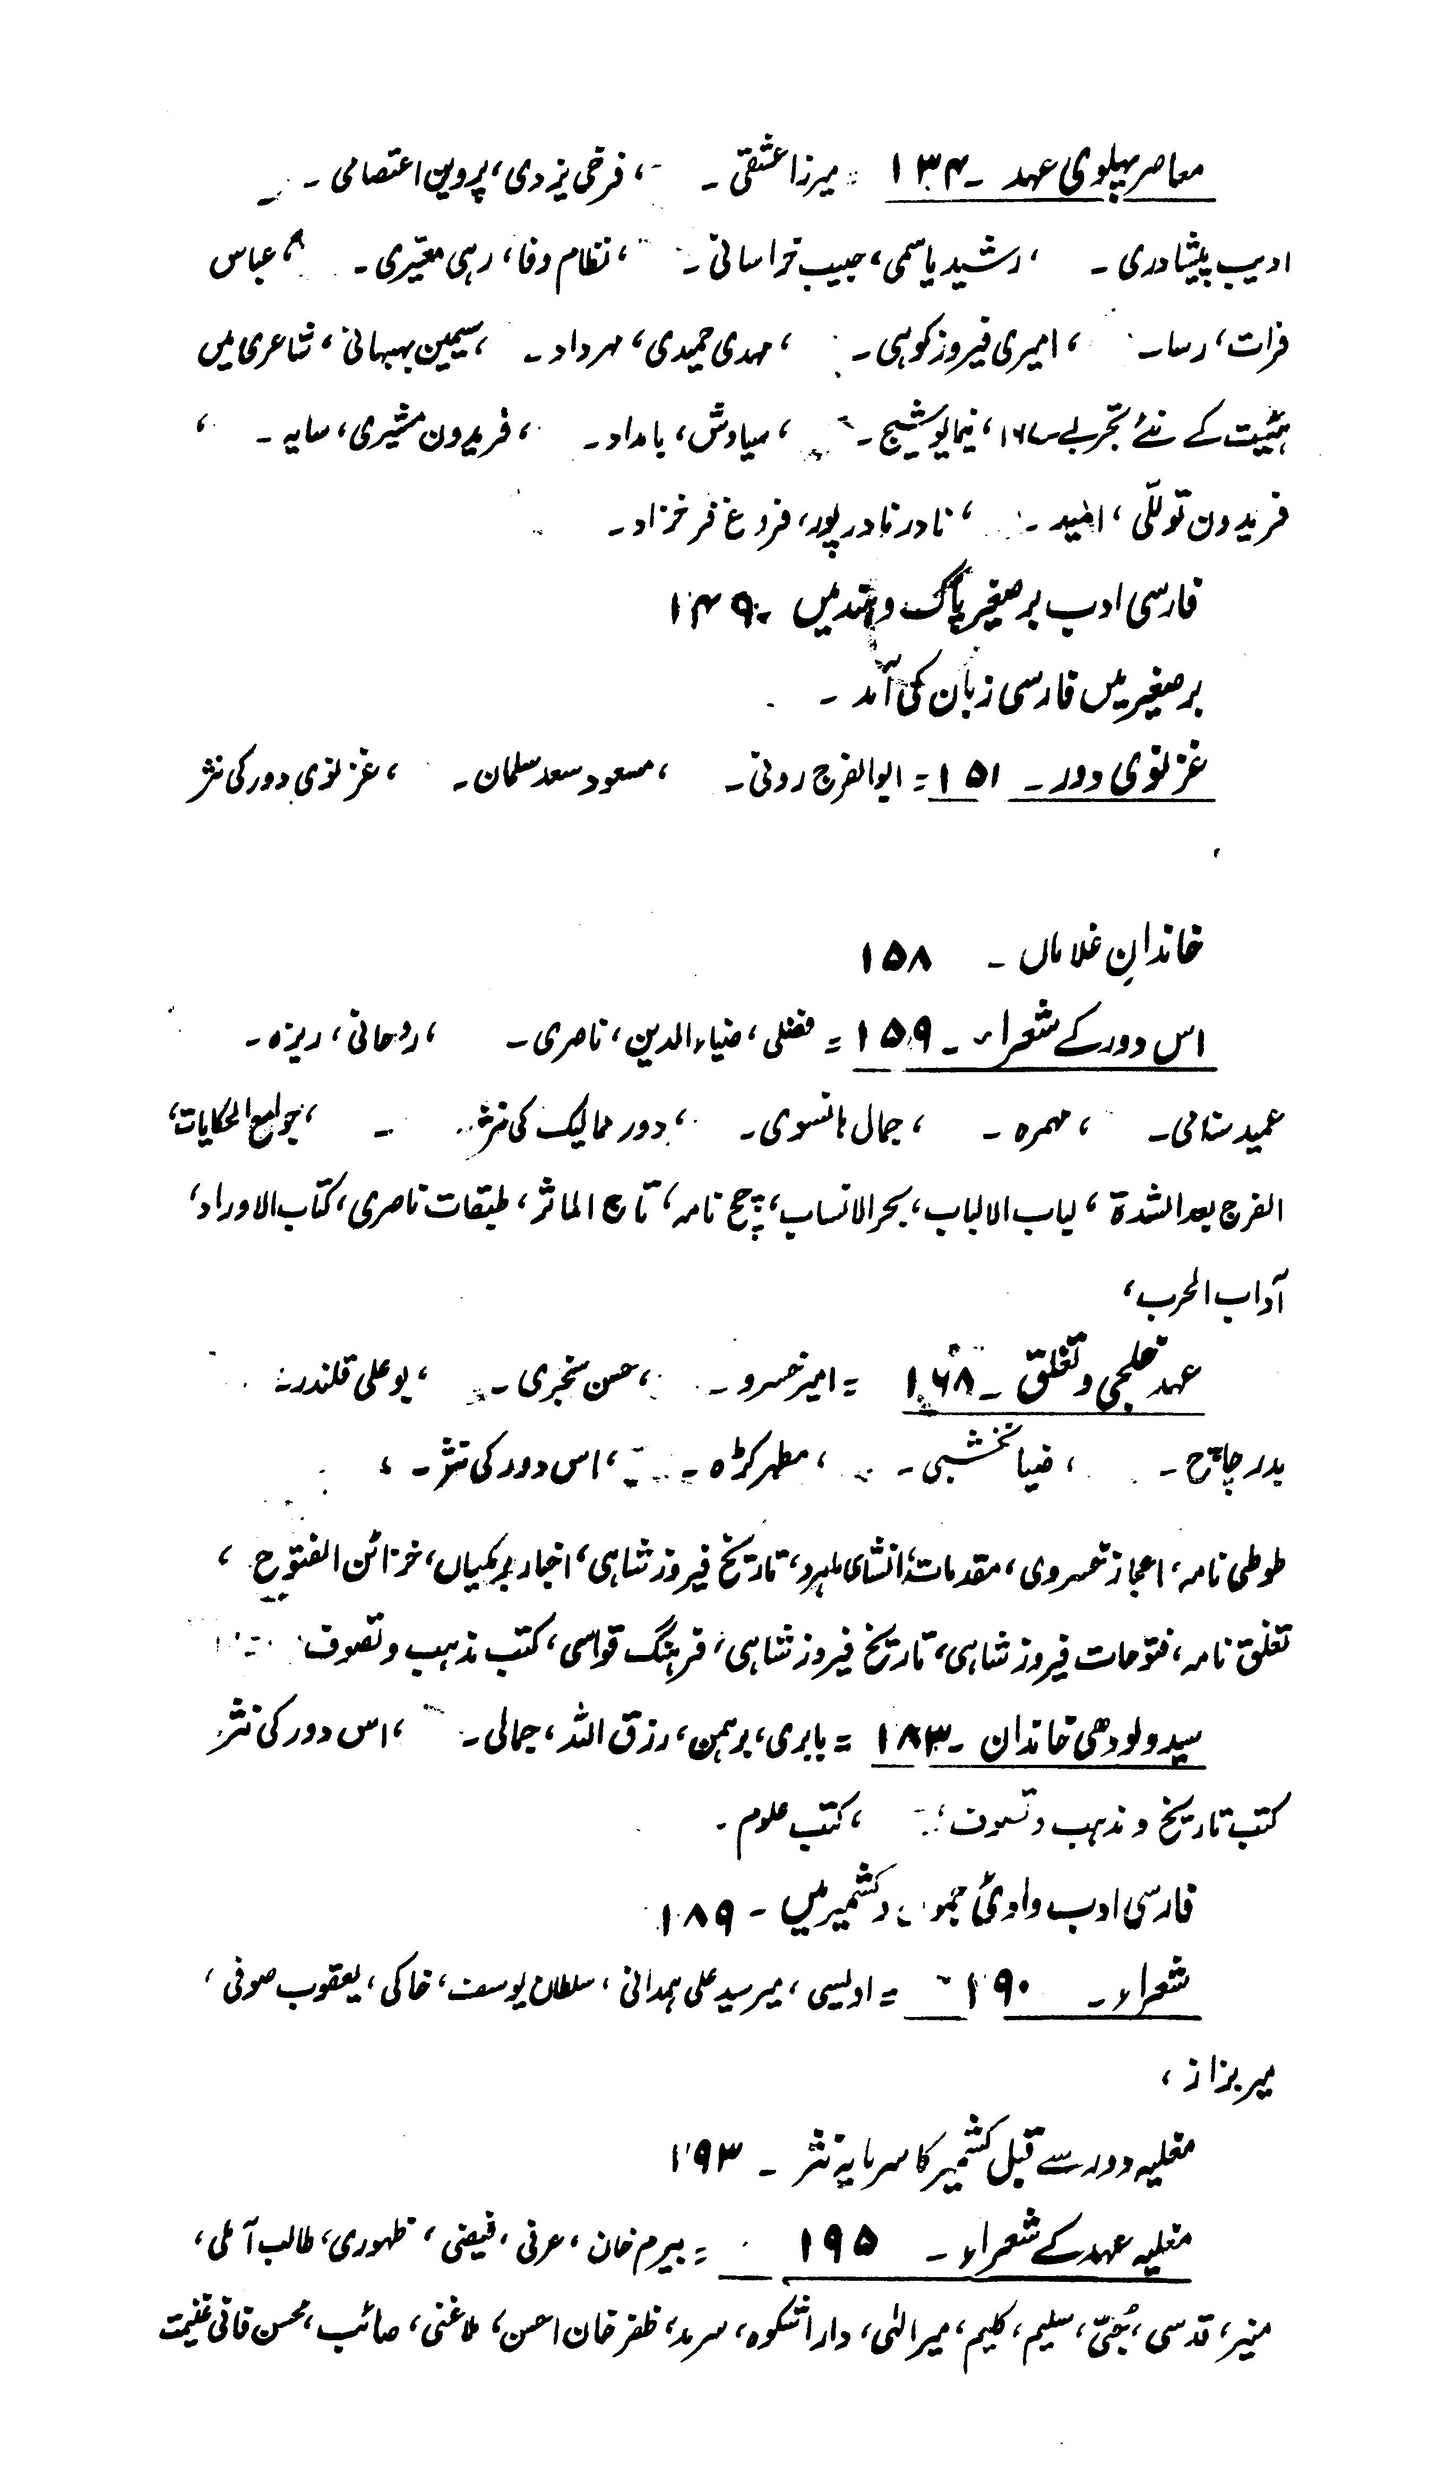 معاصر پہلوی عہد ۔ ۱۳۴ = میرزا عشقی ۔ ، فرخی یزدی، پروین اعتصامی ۔
ادیب پیشاوری ۔ ، رشید یاسمی، حبیب خراسانی ۔ ، نظام وفا، رہی معیّری ۔ ، عباس
فرات، رسا ۔ ، امیری فیروز کوہی ۔ ، مہدی حمیدی، مہرداد ۔ ، سیمین بہبہانی، شاعری میں
ہئیت کے نئے تجربے ۔ ۱۶۷، نیما یوشیج ۔ ، سیاوش، بامداد ۔ ، فریدون مشیری، سایہ ۔ ،
فریدون توللّی، امید ۔ ، نادر نادر پور، فروغ فرخزاد ۔
فارسی ادب برصغیر پاک و ہند میں ۔ ۱۴۹
برصغیر میں فارسی زبان کی آمد ۔
غزنوی دور ۔ ۱۵۱ = ابوالفرج رونی ۔ ، مسعود سعد سلمان ۔ ، غزنوی دور کی نثر
خاندانِ غلاماں ۔ ۱۵۸
اس دور کے شعراء ۔ ۱۵۹ = فضلی، ضیاء الدین، ناصری ۔ ، روحانی، ریزہ ۔
عمید سنامی ۔ ، مہمرہ ۔ ، جمال ہانسوی ۔ ، دور ممالیک کی نثر ۔ ، جوامع الحکایات،
الفرج بعد الشدۃ، لباب الالباب، بحر الانساب، چچ نامہ، تاج الماثر، طبقات ناصری، کتاب الاوراد،
آداب الحرب،
عہد خلجی و تغلق ۔ ۱۶۸ = امیر خسرو ۔ ، حسن سنجری ۔ ، بو علی قلندر ۔
بدر چاچ ۔ ، ضیا نخشبی ۔ ، مطہر کڑہ ۔ ، اس دور کی نثر ۔ ،
طوطی نامہ، اعجاز خسروی، مقدمات، انشای ماہرو، تاریخ فیروز شاہی، اخبار برمکیاں، خزائن الفتوح،
تغلق نامہ، فتوحات فیروز شاہی، تاریخ فیروز شاہی، فرہنگ قواسی، کتب مذہب و تصوف
سید و لودھی خاندان ۔ ۱۸۳ = بابری، برہمن، رزق اللہ، جمالی ۔ ، اس دور کی نثر
کتب تاریخ و مذہب و تصوف، ، کتب علوم ۔
فارسی ادب وادیٔ جموں و کشمیر میں ۔ ۱۸۹
شعراء ۔ ۱۹۰ = اویسی، میر سید علی ہمدانی، سلطان یوسف، خاکی، یعقوب صوفی،
میر بزاز،
مغلیہ دور سے قبل کشمیر کا سرمایہ نثر ۔ ۱۹۳
مغلیہ عہد کے شعراء ۔ ۱۹۵ = بیرم خان، عرفی، فیضی، ظہوری، طالب آملی،
منیر، قدسی، سلیم، کلیم، میر الٰہی، دارا شکوہ، سرمد، ظفر خان احسن، ملا غنی، صائب، محسن فانی غنیمت